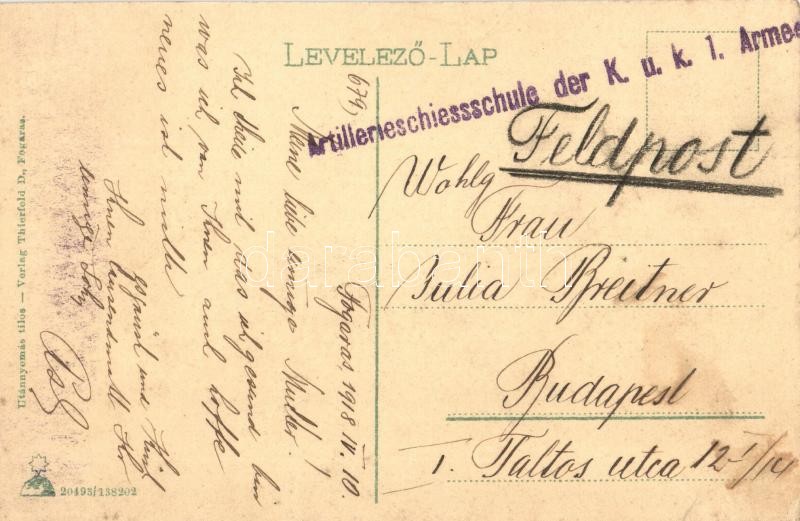 LEVELEZŐ-LAP
Artillerieschiessschule der K. u. k. 1. Armee
Feldpost
Wohlg
Frau
Julia Breitner
Budapest
I. Taltos utca 12 I/14
679)
Fogaras, 1918 IV. 10.
Meine liebe einzige Mutter!
Ich theile mit das ich gesund bin
was ich von Ihnen auch hoffe
neues ist nichts
Es grüsst und küsst
Ihnen tausendmall Ihr
einziger Sohn
Utánnyomás tilos — Verlag Thierfeld D., Fogaras.
20493/138202
darabanth